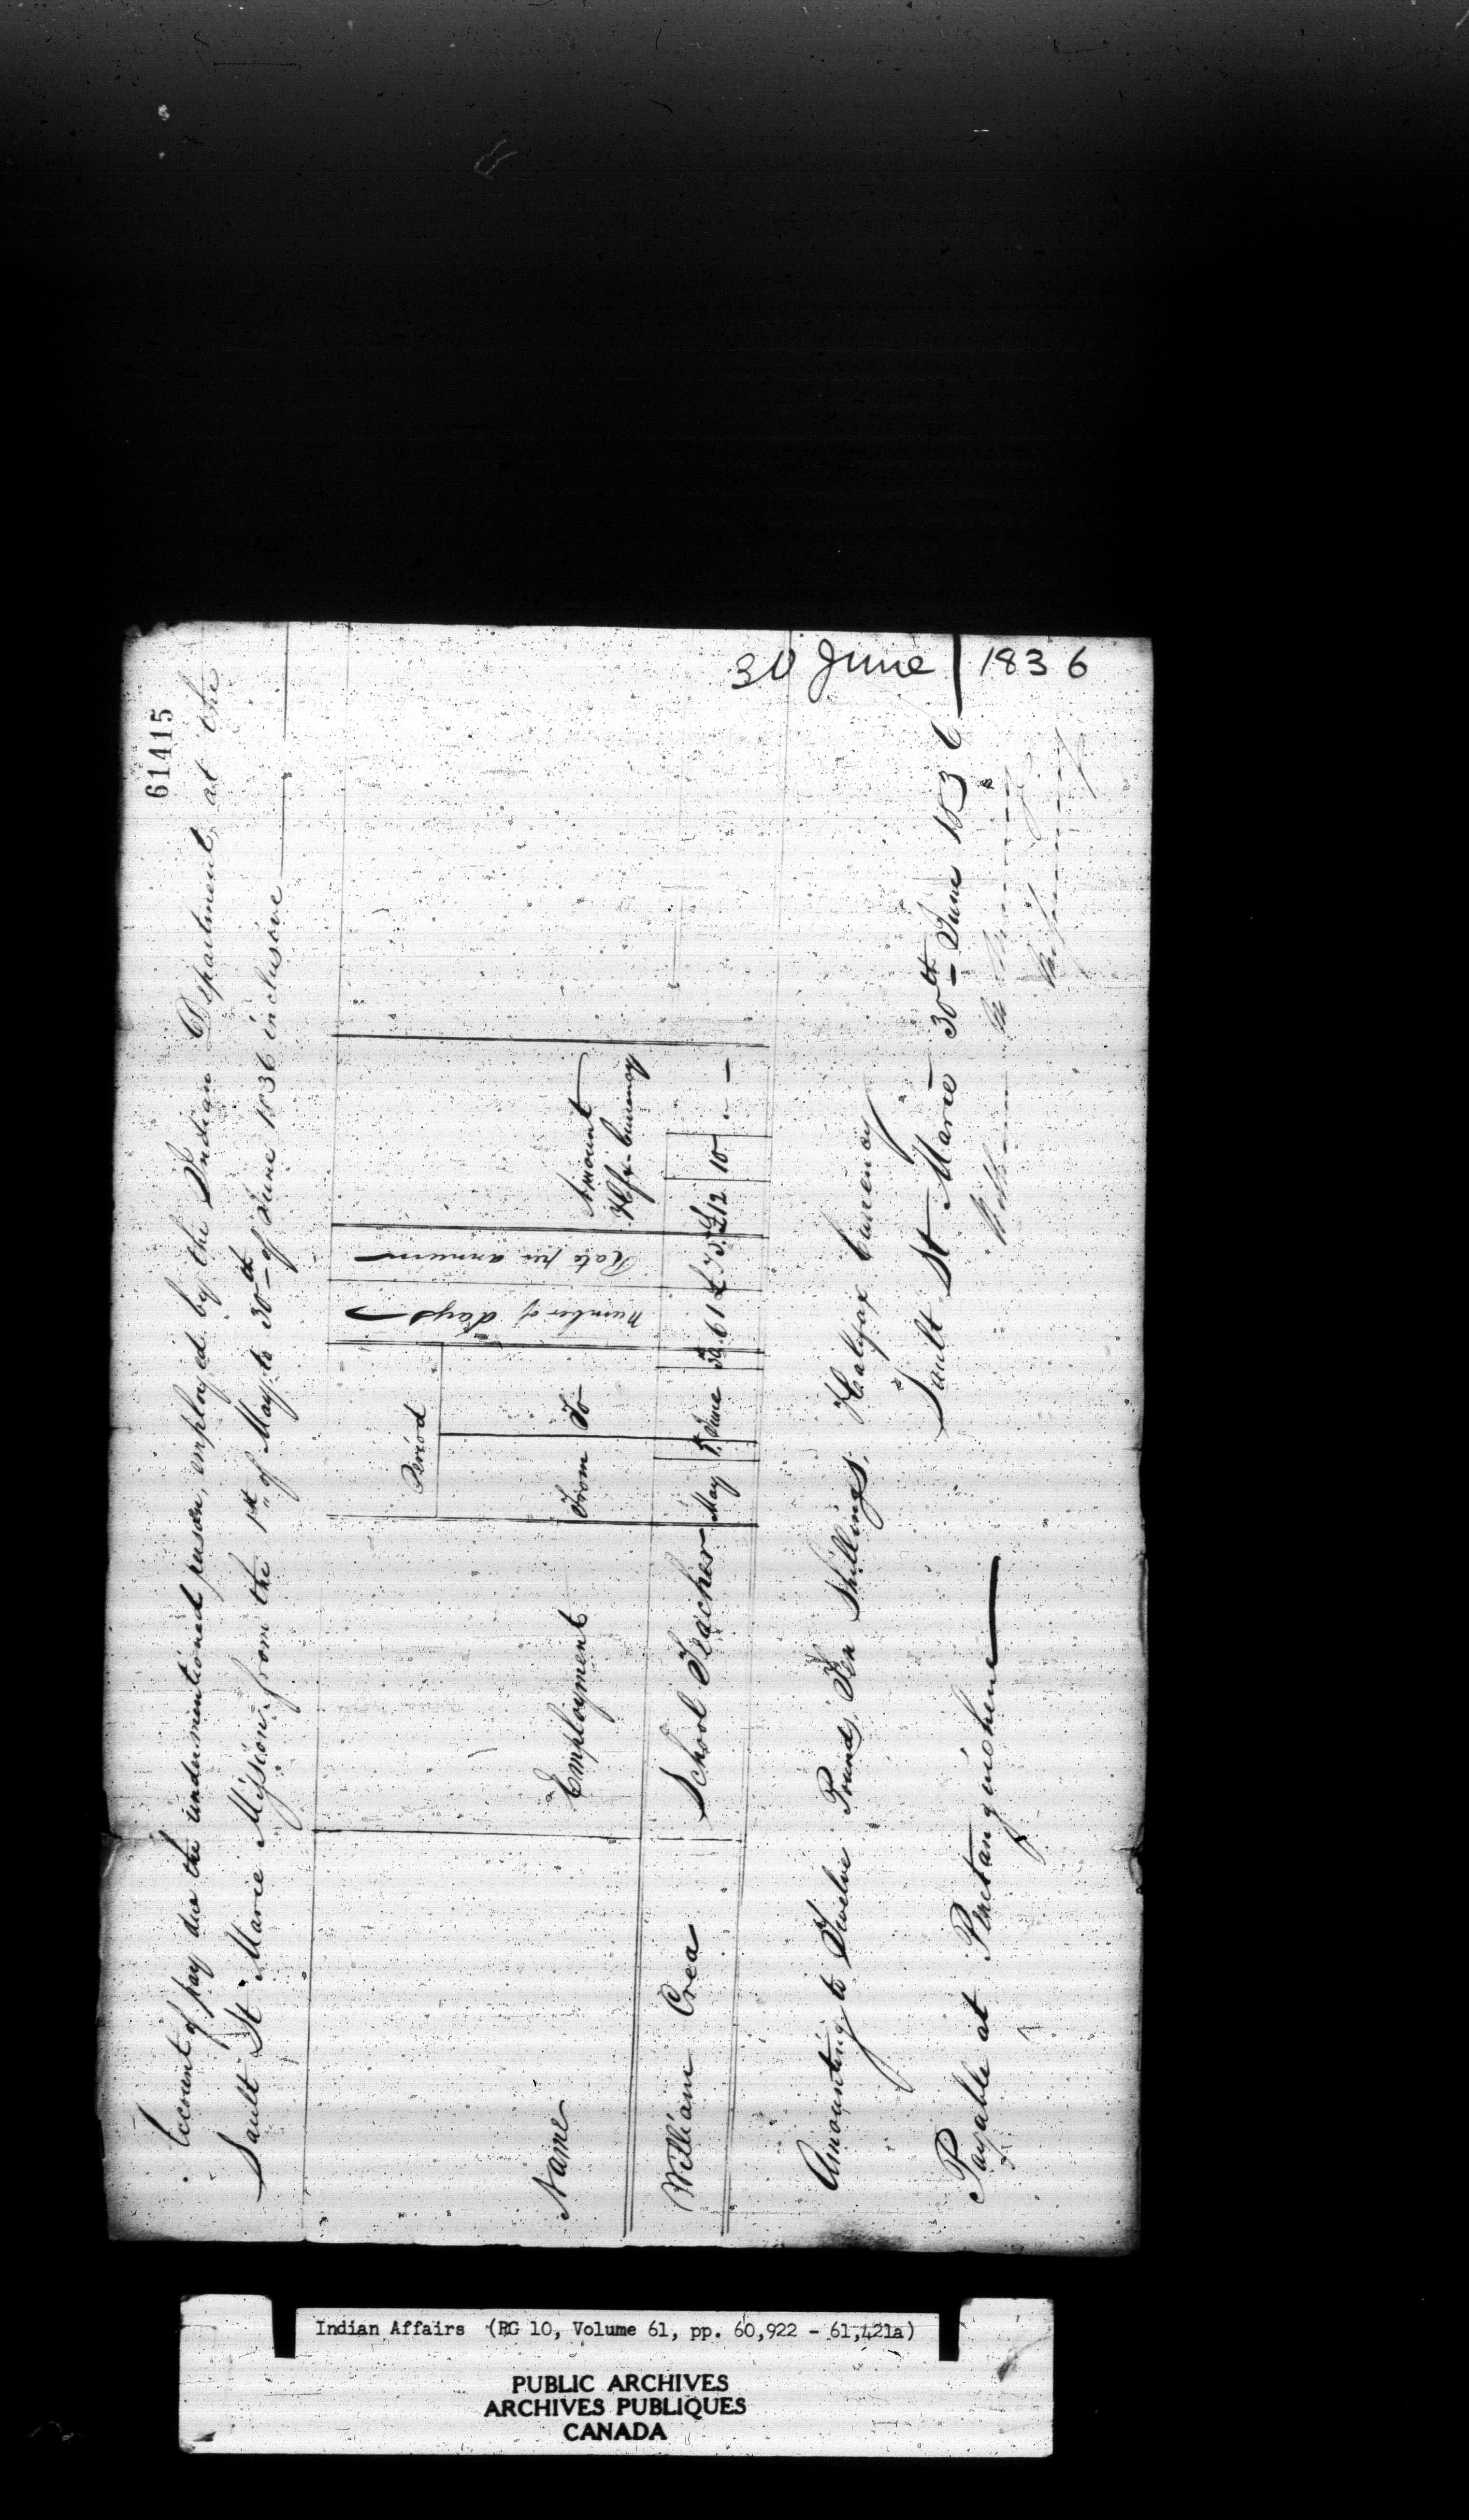 61415
Account of pay due the undermentioned person, employed by the Indian Department, at the
Sault St Marie Mission, from the 1st of May to 30th of June 1836 inclusive
Name
Employment
Period
From
To
Number of days
Rate per annum
Amount
Hfx. Currency
William Crea
School Teacher
May 1st June 30th 61 £75. £12 10 " —
Amounting to Twelve Pounds, Ten Shillings, Halifax Currency
Sault St Marie 30th June 1836
Payable at Penetanguishene
30 June 1836
Indian Affairs (RG 10, Volume 61, pp. 60,922 - 61,421a)
PUBLIC ARCHIVES
ARCHIVES PUBLIQUES
CANADA